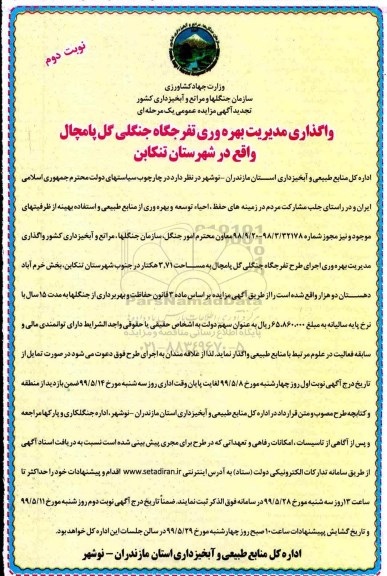 نوبت دوم
وزارت جهاد کشاورزی
سازمان جنگلها و مراتع و آبخیزداری کشور
تجدید آگهی مزایده عمومی یک مرحله ای
واگذاری مدیریت بهره وری تفرجگاه جنگلی گل پامچال
واقع در شهرستان تنکابن
اداره کل منابع طبیعی و آبخیزداری استان مازندران - نوشهر در نظر دارد در چارچوب سیاستهای دولت محترم جمهوری اسلامی
ایران و در راستای جلب مشارکت مردم در زمینه های حفظ، احیاء توسعه و بهره وری از منابع طبیعی و استفاده بهینه از ظرفیتهای
موجود و نیز مجوز شماره ۹۸/۳/۳۲۱۷۸-۹۸/۹/۲۰ معاون محترم امور جنگل، سازمان جنگلها، مراتع و آبخیزداری کشور واگذاری
مدیریت بهره وری اجرای طرح تفرجگاه جنگلی گل پامچال به مساحت ۳,۷۱ هکتار در جنوب شهرستان تنکابن، بخش خرم آباد
دهستان دو هزار واقع شده است را از طریق آگهی مزایده بر اساس ماده ۳ قانون حفاظت و بهره برداری از جنگلها به مدت ۱۵ سال با
نرخ پایه سالیانه به مبلغ ۶۵.۸۶۰.۰۰۰ ریال به عنوان سهم دولت به اشخاص حقیقی یا حقوقی واجد الشرایط دارای توانمندی مالی و
سابقه فعالیت در علوم مرتبط با منابع طبیعی واگذار نماید. لذا از علاقه مندان به اجرای طرح فوق دعوت می شود در صورت تمایل از
تاریخ درج آگهی نوبت اول روز چهارشنبه مورخ ۹۹/۵/۸ لغایت پایان وقت اداری روز سه شنبه مورخ ۹۹/۵/۱۴ ضمن بازدید از منطقه
و کتابچه طرح مصوب و متن قرارداد در اداره کل منابع طبیعی و آبخیزداری استان مازندران - نوشهر، اداره جنگلکاری و پارکها مراجعه
و پس از آگاهی از تاسیسات، امکانات رفاهی و تعهداتی که در طرح برای مجری پیش بینی شده است نسبت به دریافت اسناد آگهی
از طریق سامانه تدارکات الکترونیکی دولت (ستاد) به آدرس اینترنتی www.setadiran.ir اقدام و پیشنهادات خود را حداکثر تا
ساعت ۱۳ روز سه شنبه مورخ ۹۹/۵/۲۸ در سامانه فوق الذکر ثبت نمایند. ضمناً تاریخ درج آگهی نوبت دوم روز شنبه مورخ ۹۹/۵/۱۱
و تاریخ گشایش پیشنهادات ساعت ۱۰ صبح روز چهارشنبه مورخ ۹۹/۵/۲۹ در سالن جلسات این اداره کل خواهد بود.
اداره کل منابع طبیعی و آبخیزداری استان مازندران - نوشهر